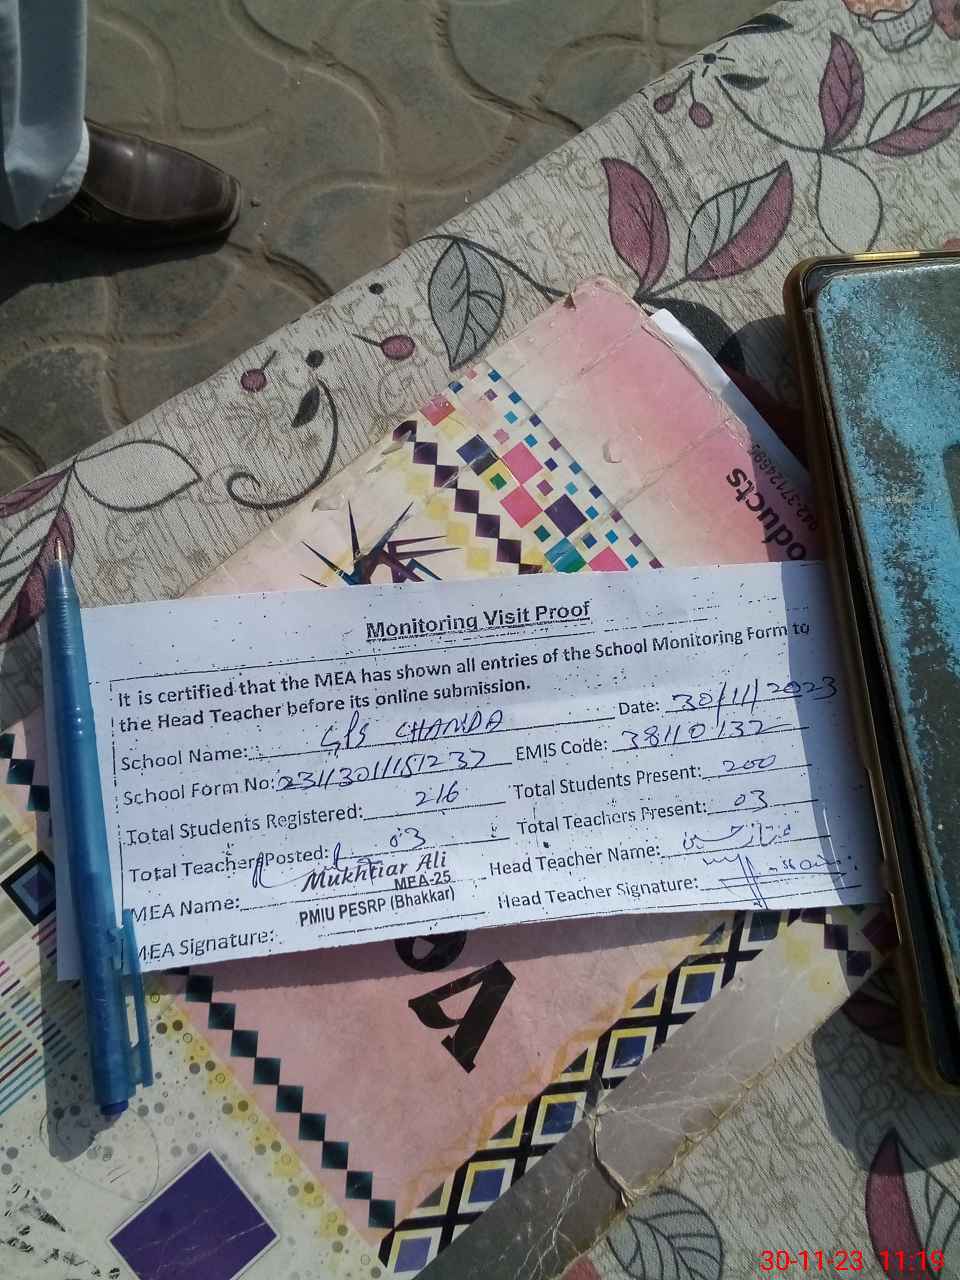 042-37124695
oducts
Monitoring Visit Proof
It is certified that the MEA has shown all entries of the School Monitoring Form to
the Head Teacher before its online submission.
School Name: GPS CHANDA Date: 30/11/2023
School Form No: EMIS Code: 38110132
Total Students Registered: 216 Total Students Present: 200
Total Teacher Posted: 03 Total Teachers Present: 03
MEA Name: Mukhtiar Ali Head Teacher Name: ممتاز حسین
MEA-25
PMIU PESRP (Bhakkar)
MEA Signature: Head Teacher Signature:
30-11-23 11:19